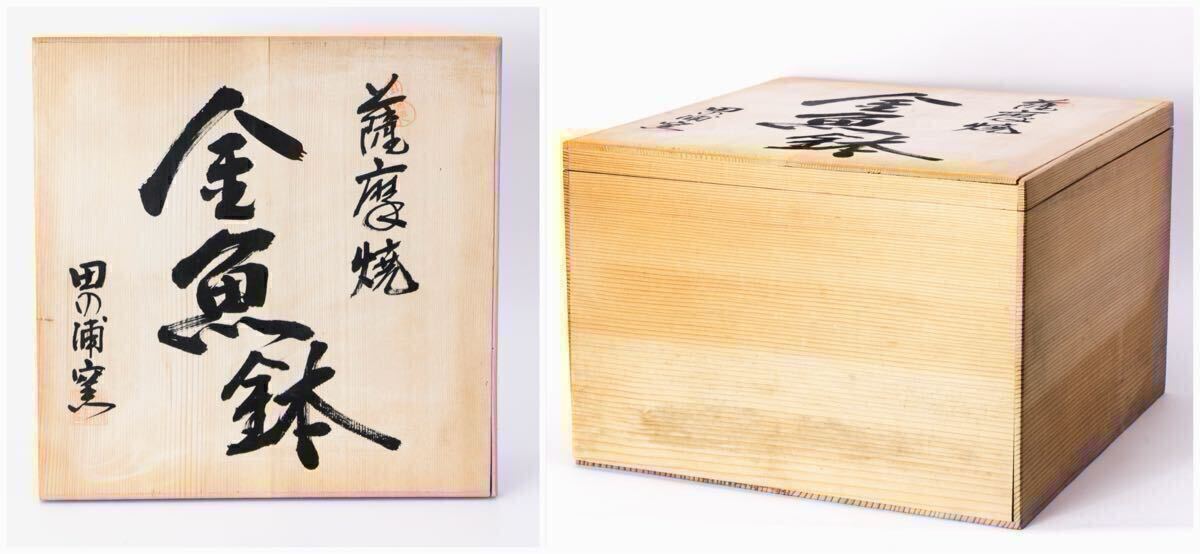 薩摩焼
金魚鉢
田の浦窯
薩摩焼
金魚鉢
田の浦窯